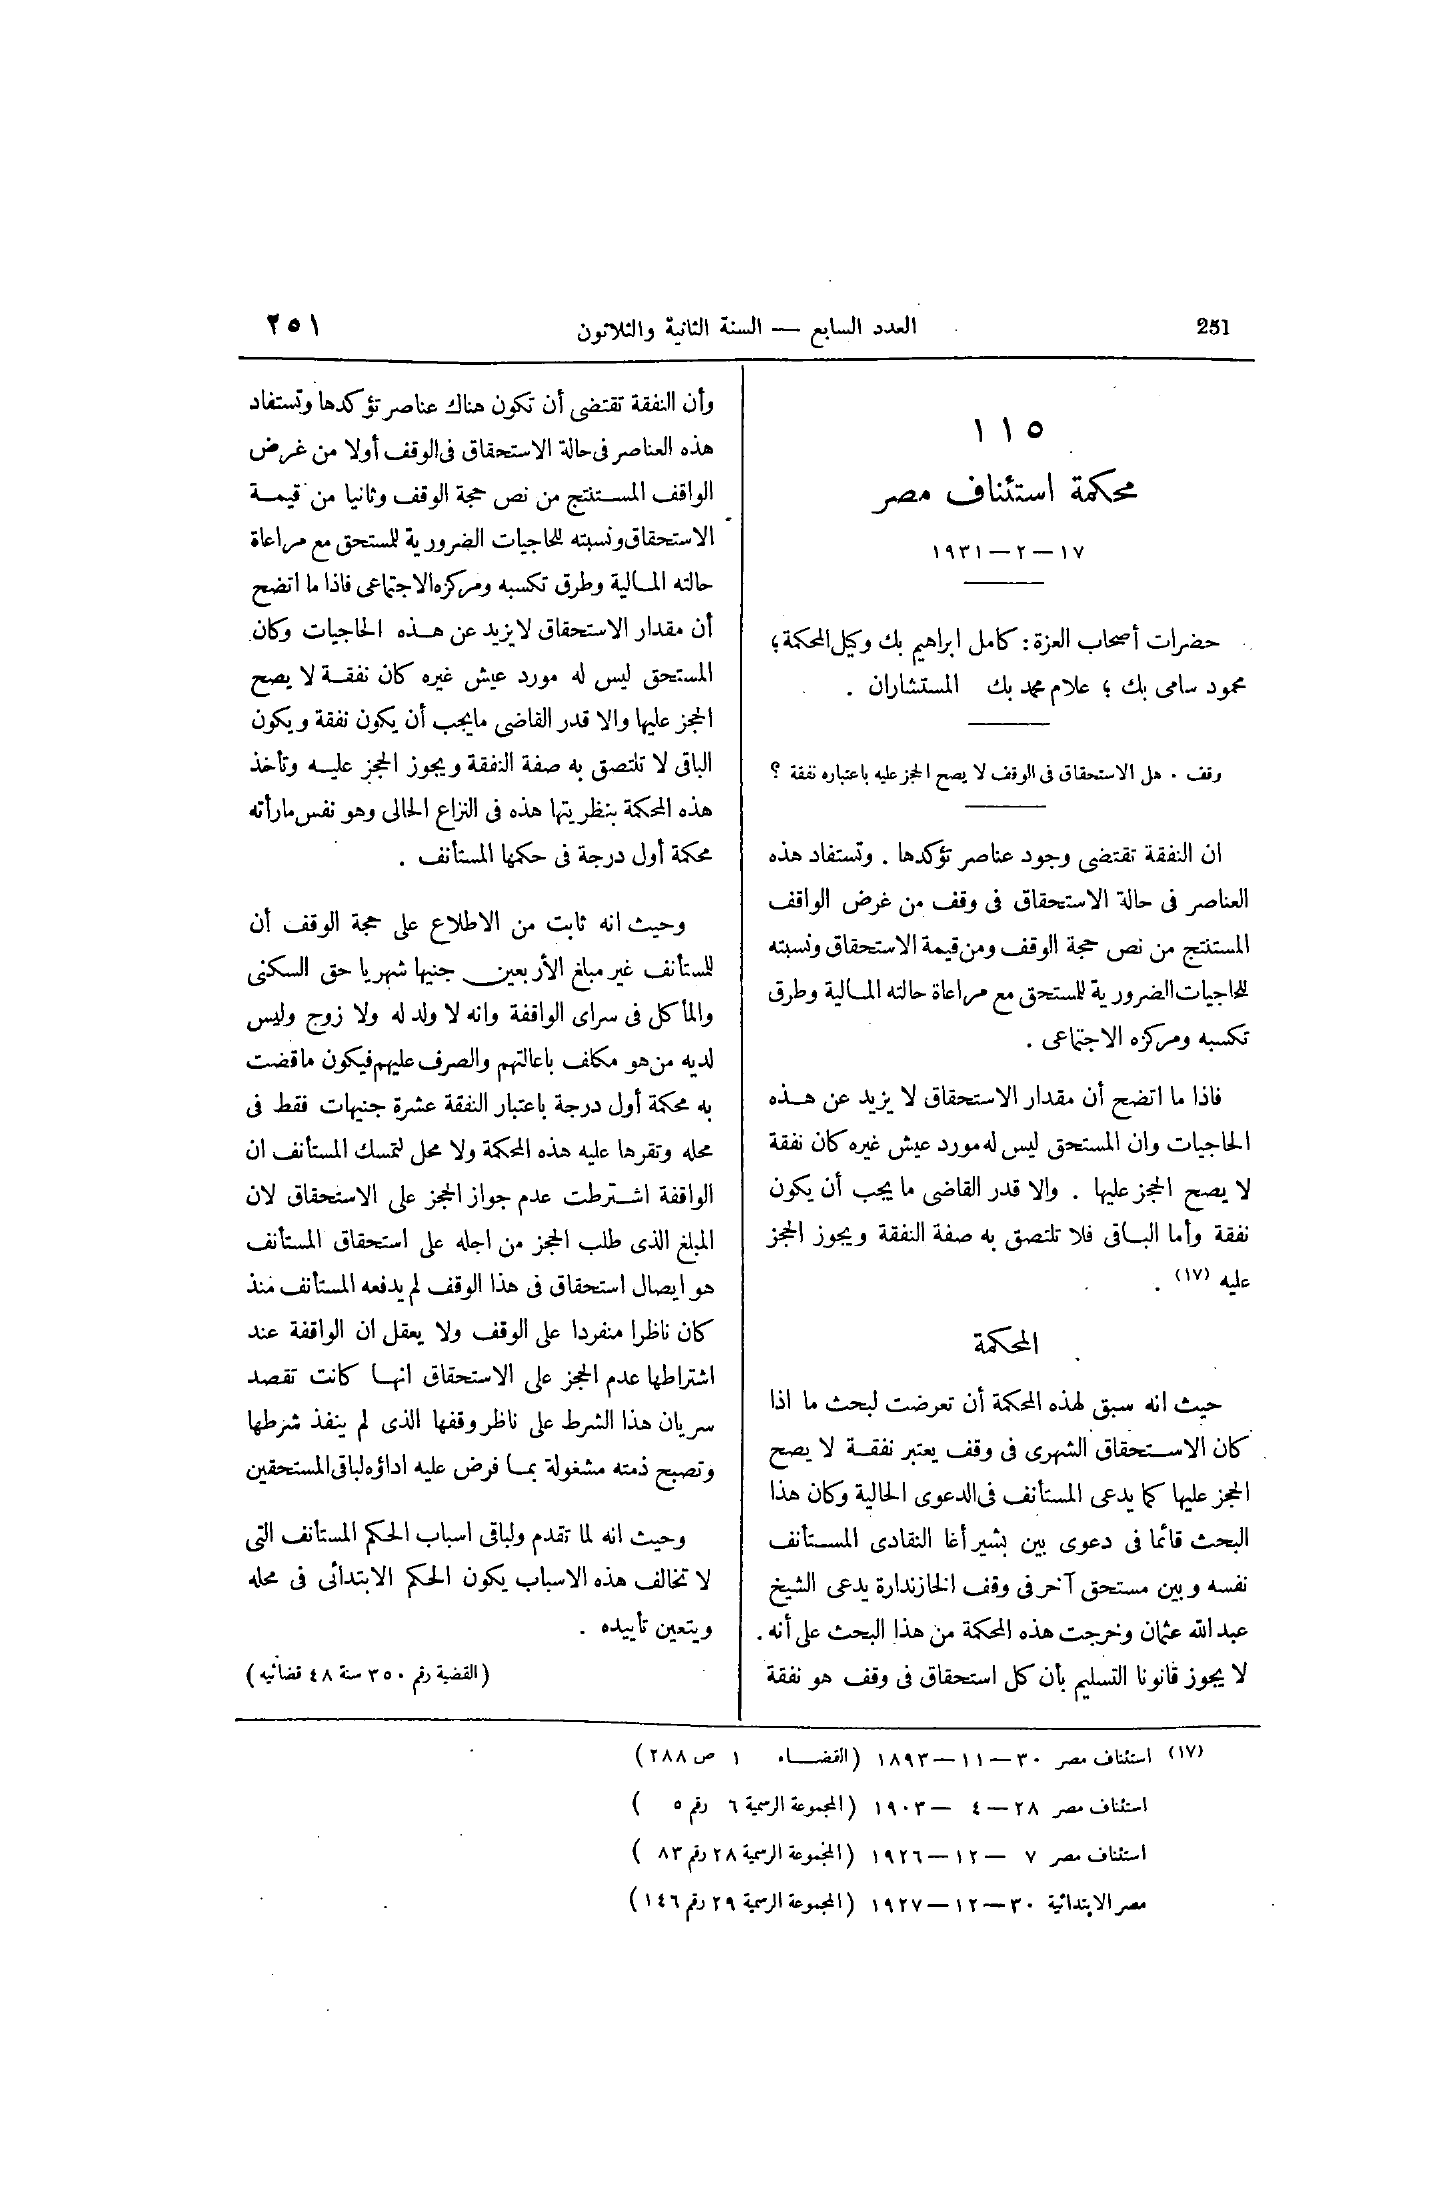 251
العدد السابع — السنة الثانية والثلاثون
٢٥١
١١٥
محكمة استئناف مصر
١٧ — ٢ — ١٩٣١
حضرات أصحاب العزة : كامل ابراهيم بك وكيل المحكمة ؛
محمود سامى بك ؛ علام محمد بك المستشاران .
وقف . هل الاستحقاق فى الوقف لا يصح الحجز عليه باعتباره نفقة ؟
ان النفقة تقتضى وجود عناصر تؤكدها . وتستفاد هذه
العناصر فى حالة الاستحقاق فى وقف من غرض الواقف
المستنتج من نص حجة الوقف ومن قيمة الاستحقاق ونسبته
للحاجيات الضرورية للمستحق مع مراعاة حالته المالية وطرق
تكسبه ومركزه الاجتماعى .
فاذا ما اتضح أن مقدار الاستحقاق لا يزيد عن هذه
الحاجيات وان المستحق ليس له مورد عيش غيره كان نفقة
لا يصح الحجز عليها . والا قدر القاضى ما يجب أن يكون
نفقة وأما الباقى فلا تلتصق به صفة النفقة ويجوز الحجز
عليه (١٧) .
المحكمة
حيث انه سبق لهذه المحكمة أن تعرضت لبحث ما اذا
كان الاستحقاق الشهرى فى وقف يعتبر نفقة لا يصح
الحجز عليها كما يدعى المستأنف فى الدعوى الحالية وكان هذا
البحث قائما فى دعوى بين بشير أغا النقادى المستأنف
نفسه وبين مستحق آخر فى وقف الخازندارة يدعى الشيخ
عبد الله عثمان وخرجت هذه المحكمة من هذا البحث على أنه
لا يجوز قانونا التسليم بأن كل استحقاق فى وقف هو نفقة
وأن النفقة تقتضى أن تكون هناك عناصر تؤكدها وتستفاد
هذه العناصر فى حالة الاستحقاق فى الوقف أولا من غرض
الواقف المستنتج من نص حجة الوقف وثانيا من قيمة
الاستحقاق ونسبته للحاجيات الضرورية للمستحق مع مراعاة
حالته المالية وطرق تكسبه ومركزه الاجتماعى فاذا ما اتضح
أن مقدار الاستحقاق لا يزيد عن هذه الحاجيات وكان
المستحق ليس له مورد عيش غيره كان نفقة لا يصح
الحجز عليها والا قدر القاضى مايجب أن يكون نفقة ويكون
الباقى لا تلتصق به صفة النفقة ويجوز الحجز عليه وتأخذ
هذه المحكمة بنظريتها هذه فى النزاع الحالى وهو نفس مارأته
محكمة أول درجة فى حكمها المستأنف .
وحيث انه ثابت من الاطلاع على حجة الوقف أن
للمستأنف غير مبلغ الأربعين جنيها شهريا حق السكنى
والمأكل فى سراى الواقفة وانه لا ولد له ولا زوج وليس
لديه من هو مكلف باعالتهم والصرف عليهم فيكون ما قضت
به محكمة أول درجة باعتبار النفقة عشرة جنيهات فقط فى
محله وتقرها عليه هذه المحكمة ولا محل لتمسك المستأنف ان
الواقفة اشترطت عدم جواز الحجز على الاستحقاق لان
المبلغ الذى طلب الحجز من اجله على استحقاق المستأنف
هو ايصال استحقاق فى هذا الوقف لم يدفعه المستأنف منذ
كان ناظرا منفردا على الوقف ولا يعقل ان الواقفة عند
اشتراطها عدم الحجز على الاستحقاق انها كانت تقصد
سريان هذا الشرط على ناظر وقفها الذى لم ينفذ شرطها
وتصبح ذمته مشغولة بما فرض عليه اداؤه لباقى المستحقين
وحيث انه لما تقدم ولباقى اسباب الحكم المستأنف التى
لا تخالف هذه الاسباب يكون الحكم الابتدائى فى محله
ويتعين تأييده .
(القضية رقم ٣٥٠ سنة ٤٨ قضائيه)
(١٧) استئناف مصر ٣٠ — ١١ — ١٨٩٣ (القضاء ١ ص ٢٨٨)
استئناف مصر ٢٨ — ٤ — ١٩٠٣ (المجموعة الرسمية ٦ رقم ٥ )
استئناف مصر ٧ — ١٢ — ١٩٢٦ (المجموعة الرسمية ٢٨ رقم ٨٣ )
مصر الابتدائية ٣٠ — ١٢ — ١٩٢٧ (المجموعة الرسمية ٢٩ رقم ١٤٦)